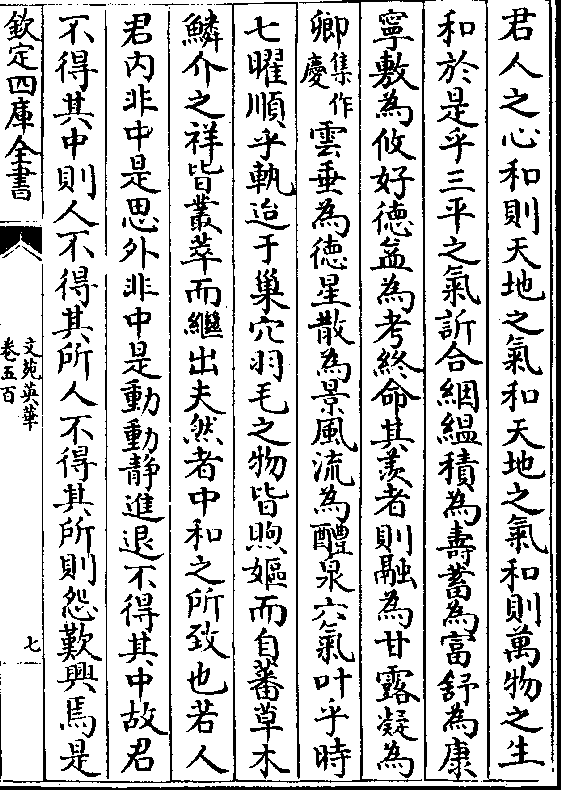 君人之心和則天地之氣和天地之氣和則萬物之生
和於是乎三平之氣訢合絪縕積為壽蓄為富舒為康
寧敷為攸好德益為考終命其羨者則融為甘露凝為
卿集作慶雲垂為德星散為景風流為醴泉六氣叶乎時
七曜順乎軌迨于巢穴羽毛之物皆煦嫗而自蕃草木
鱗介之祥皆叢萃而繼出夫然者中和之所致也若人
君內非中是思外非中是動動靜進退不得其中故君
不得其中則人不得其所人不得其所則怨歎興焉是
欽定四庫全書
文苑英華
卷五百
七